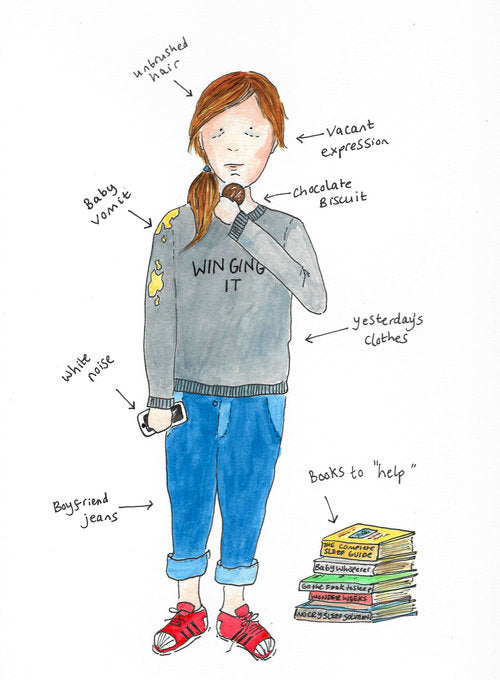 unbrushed
hair
Vacant
expression
Baby
vomit
Chocolate
Biscuit
WINGING
IT
yesterday's
clothes
White
noise
Books to "help"
Boyfriend
jeans
THE COMPLETE
SLEEP GUIDE
Baby Whisperer
Go the F**k to sleep
WONDER WEEKS
NO CRY SLEEP SOLUTION